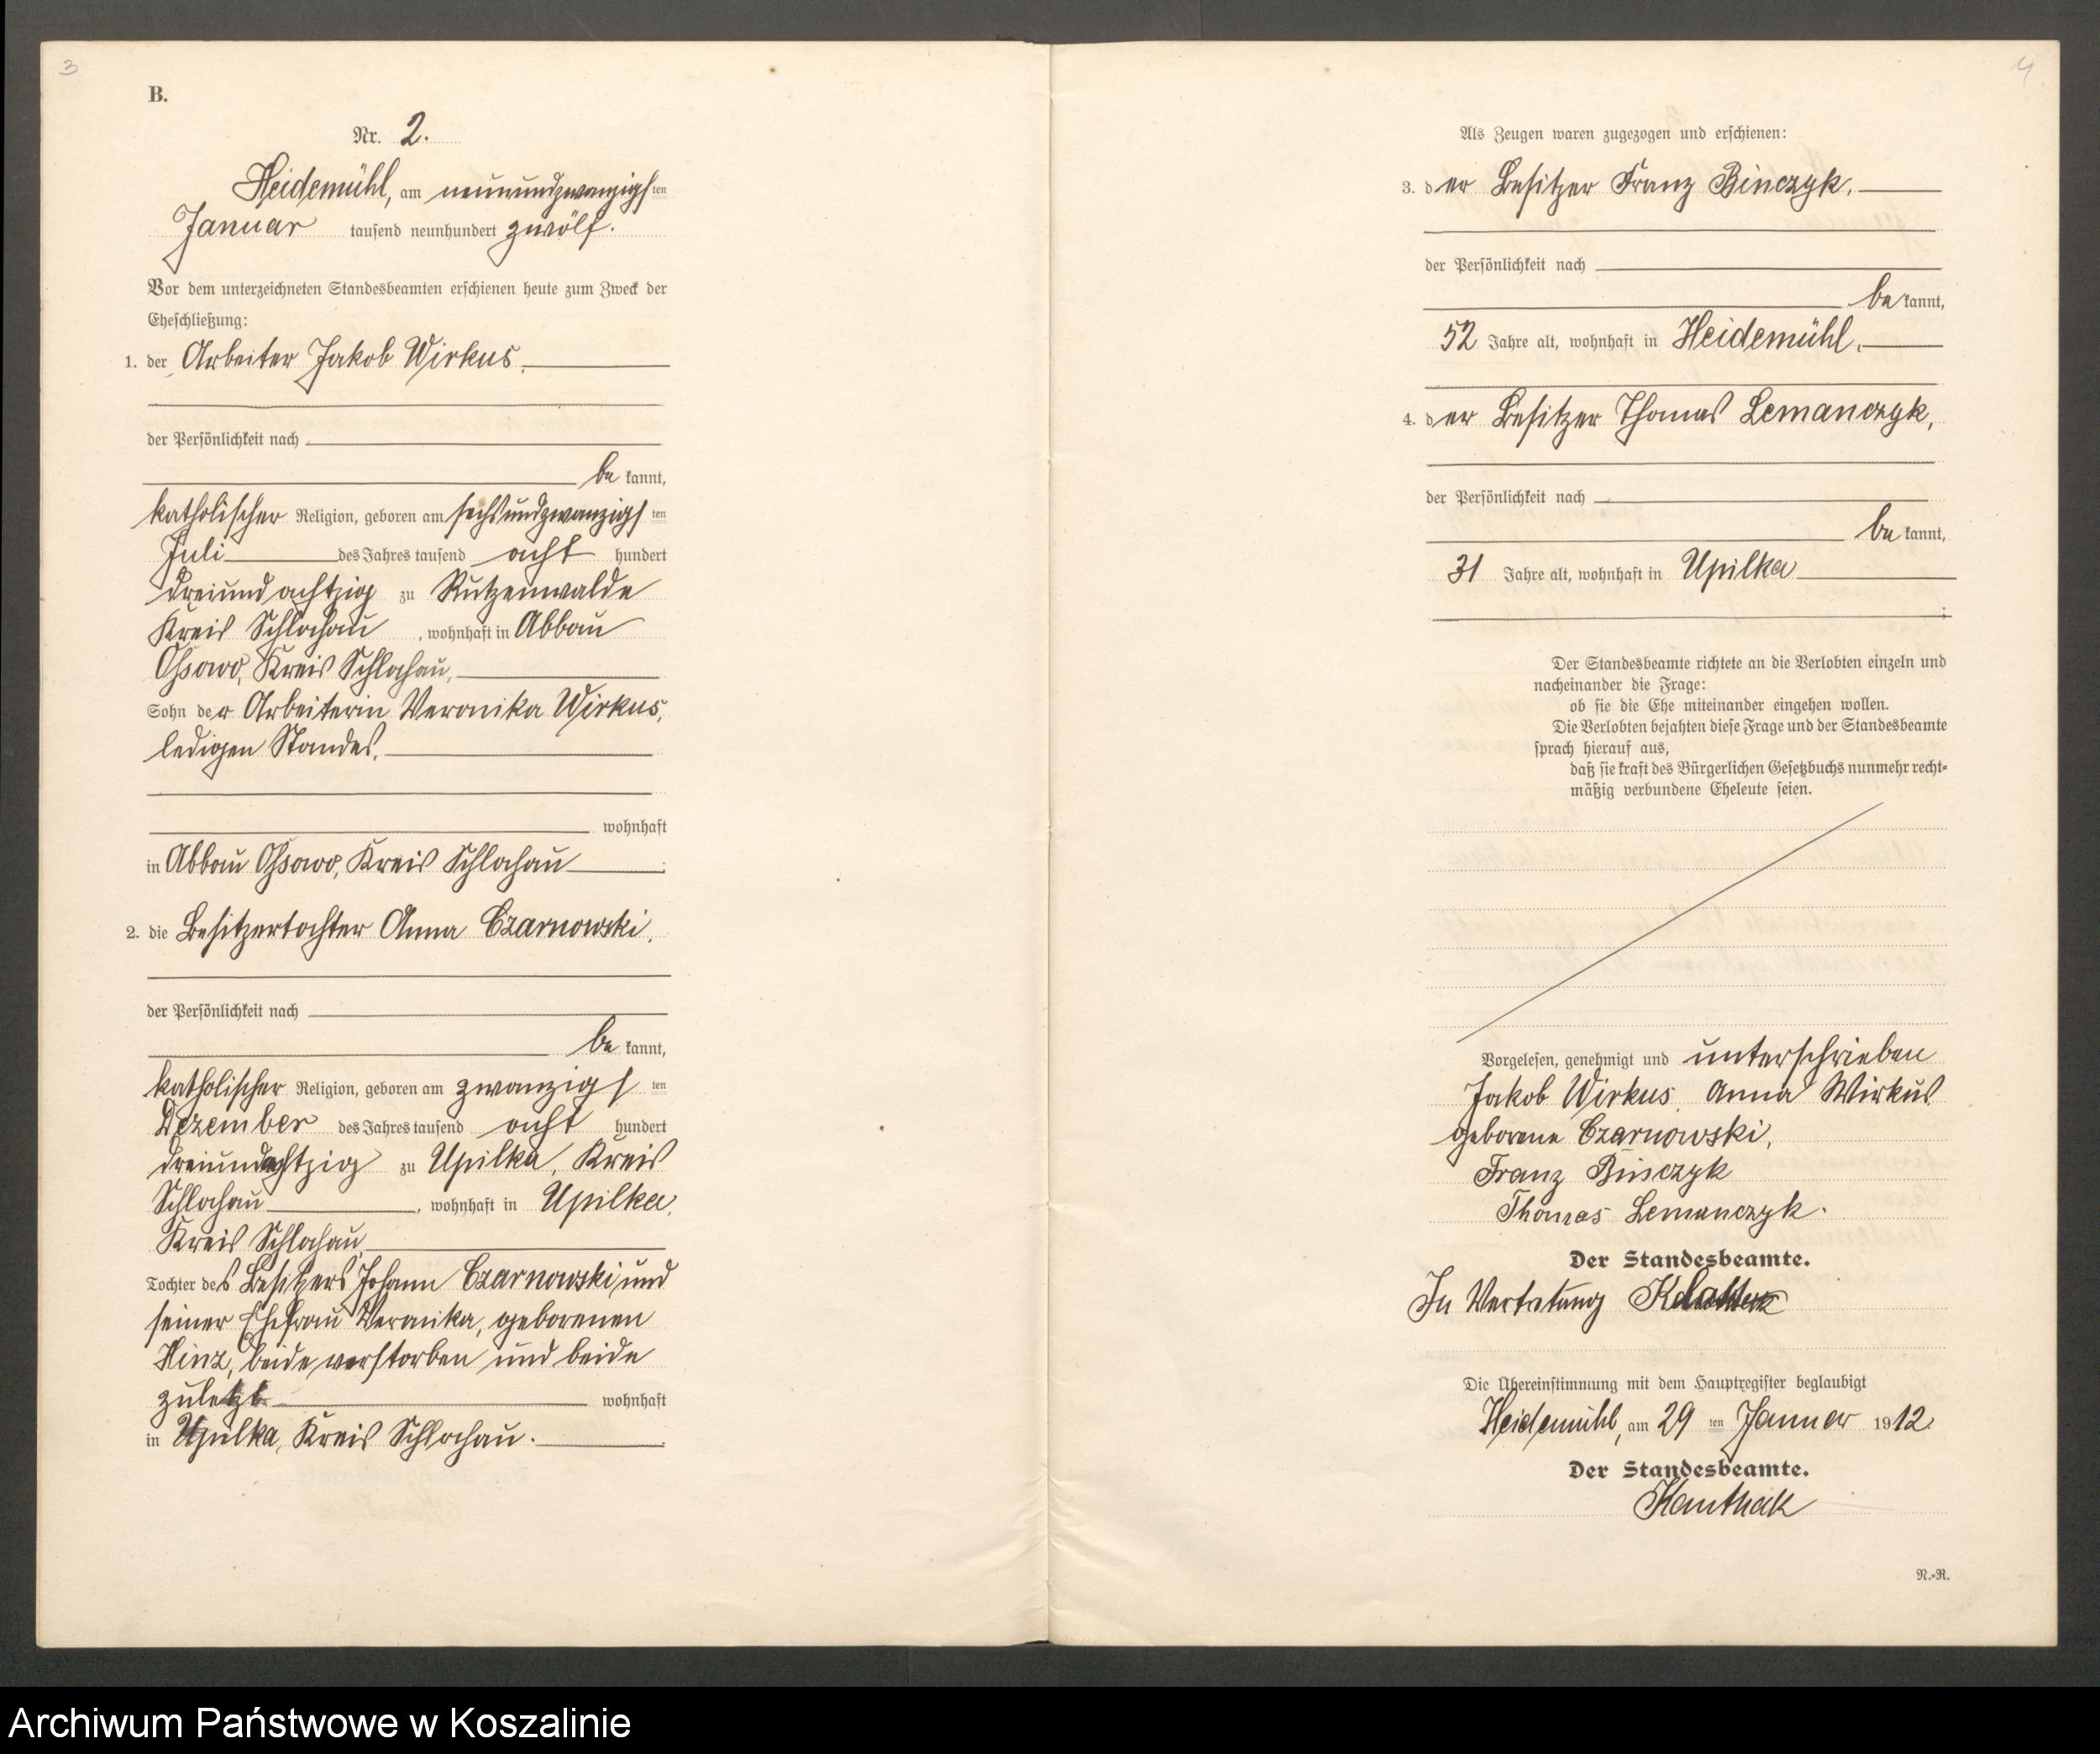 3
B.
Nr. 2.
Heidemühl, am neunundzwanzigsten
Januar tausend neunhundert zwölf.
Vor dem unterzeichneten Standesbeamten erschienen heute zum Zweck der
Eheschließung:
1. der Arbeiter Jakob Wirkus,
der Persönlichkeit nach
be kannt,
katholischer Religion, geboren am sechsundzwanzigsten
Juli des Jahres tausend acht hundert
dreiundachtzig zu Rutzenwalde
Kreis Schlochau, wohnhaft in Abbau
Ossowo, Kreis Schlochau,
Sohn der Arbeiterin Veronika Wirkus,
ledigen Standes,
wohnhaft
in Abbau Ossowo, Kreis Schlochau.
2. die Besitzertochter Anna Czarnowski,
der Persönlichkeit nach
be kannt,
katholischer Religion, geboren am zwanzigsten
Dezember des Jahres tausend acht hundert
dreiundachtzig zu Upilka, Kreis
Schlochau, wohnhaft in Upilka,
Kreis Schlochau,
Tochter des Besitzers Johann Czarnowski und
seiner Ehefrau Veronika, geborenen
Hinz, beide verstorben und beide
zuletzt wohnhaft
in Upilka, Kreis Schlochau.
4
Als Zeugen waren zugezogen und erschienen:
3. der Besitzer Franz Binczyk,
der Persönlichkeit nach
be kannt,
52 Jahre alt, wohnhaft in Heidemühl,
4. der Besitzer Thomas Lemanczyk,
der Persönlichkeit nach
be kannt,
31 Jahre alt, wohnhaft in Upilka
;
Der Standesbeamte richtete an die Verlobten einzeln und
nacheinander die Frage:
ob sie die Ehe miteinander eingehen wollen.
Die Verlobten bejahten diese Frage und der Standesbeamte
sprach hierauf aus,
daß sie kraft des Bürgerlichen Gesetzbuchs nunmehr recht-
mäßig verbundene Eheleute seien.
Vorgelesen, genehmigt und unterschrieben
Jakob Wirkus. Anna Wirkus
geborene Czarnowski,
Franz Binczyk
Thomas Lemanczyk.
Der Standesbeamte.
In Vertretung
Die Übereinstimmung mit dem Hauptregister beglaubigt
Heidemühl, am 29 ten Januar 1912.
Der Standesbeamte.
Kanthak
N.-R.
Archiwum Państwowe w Koszalinie